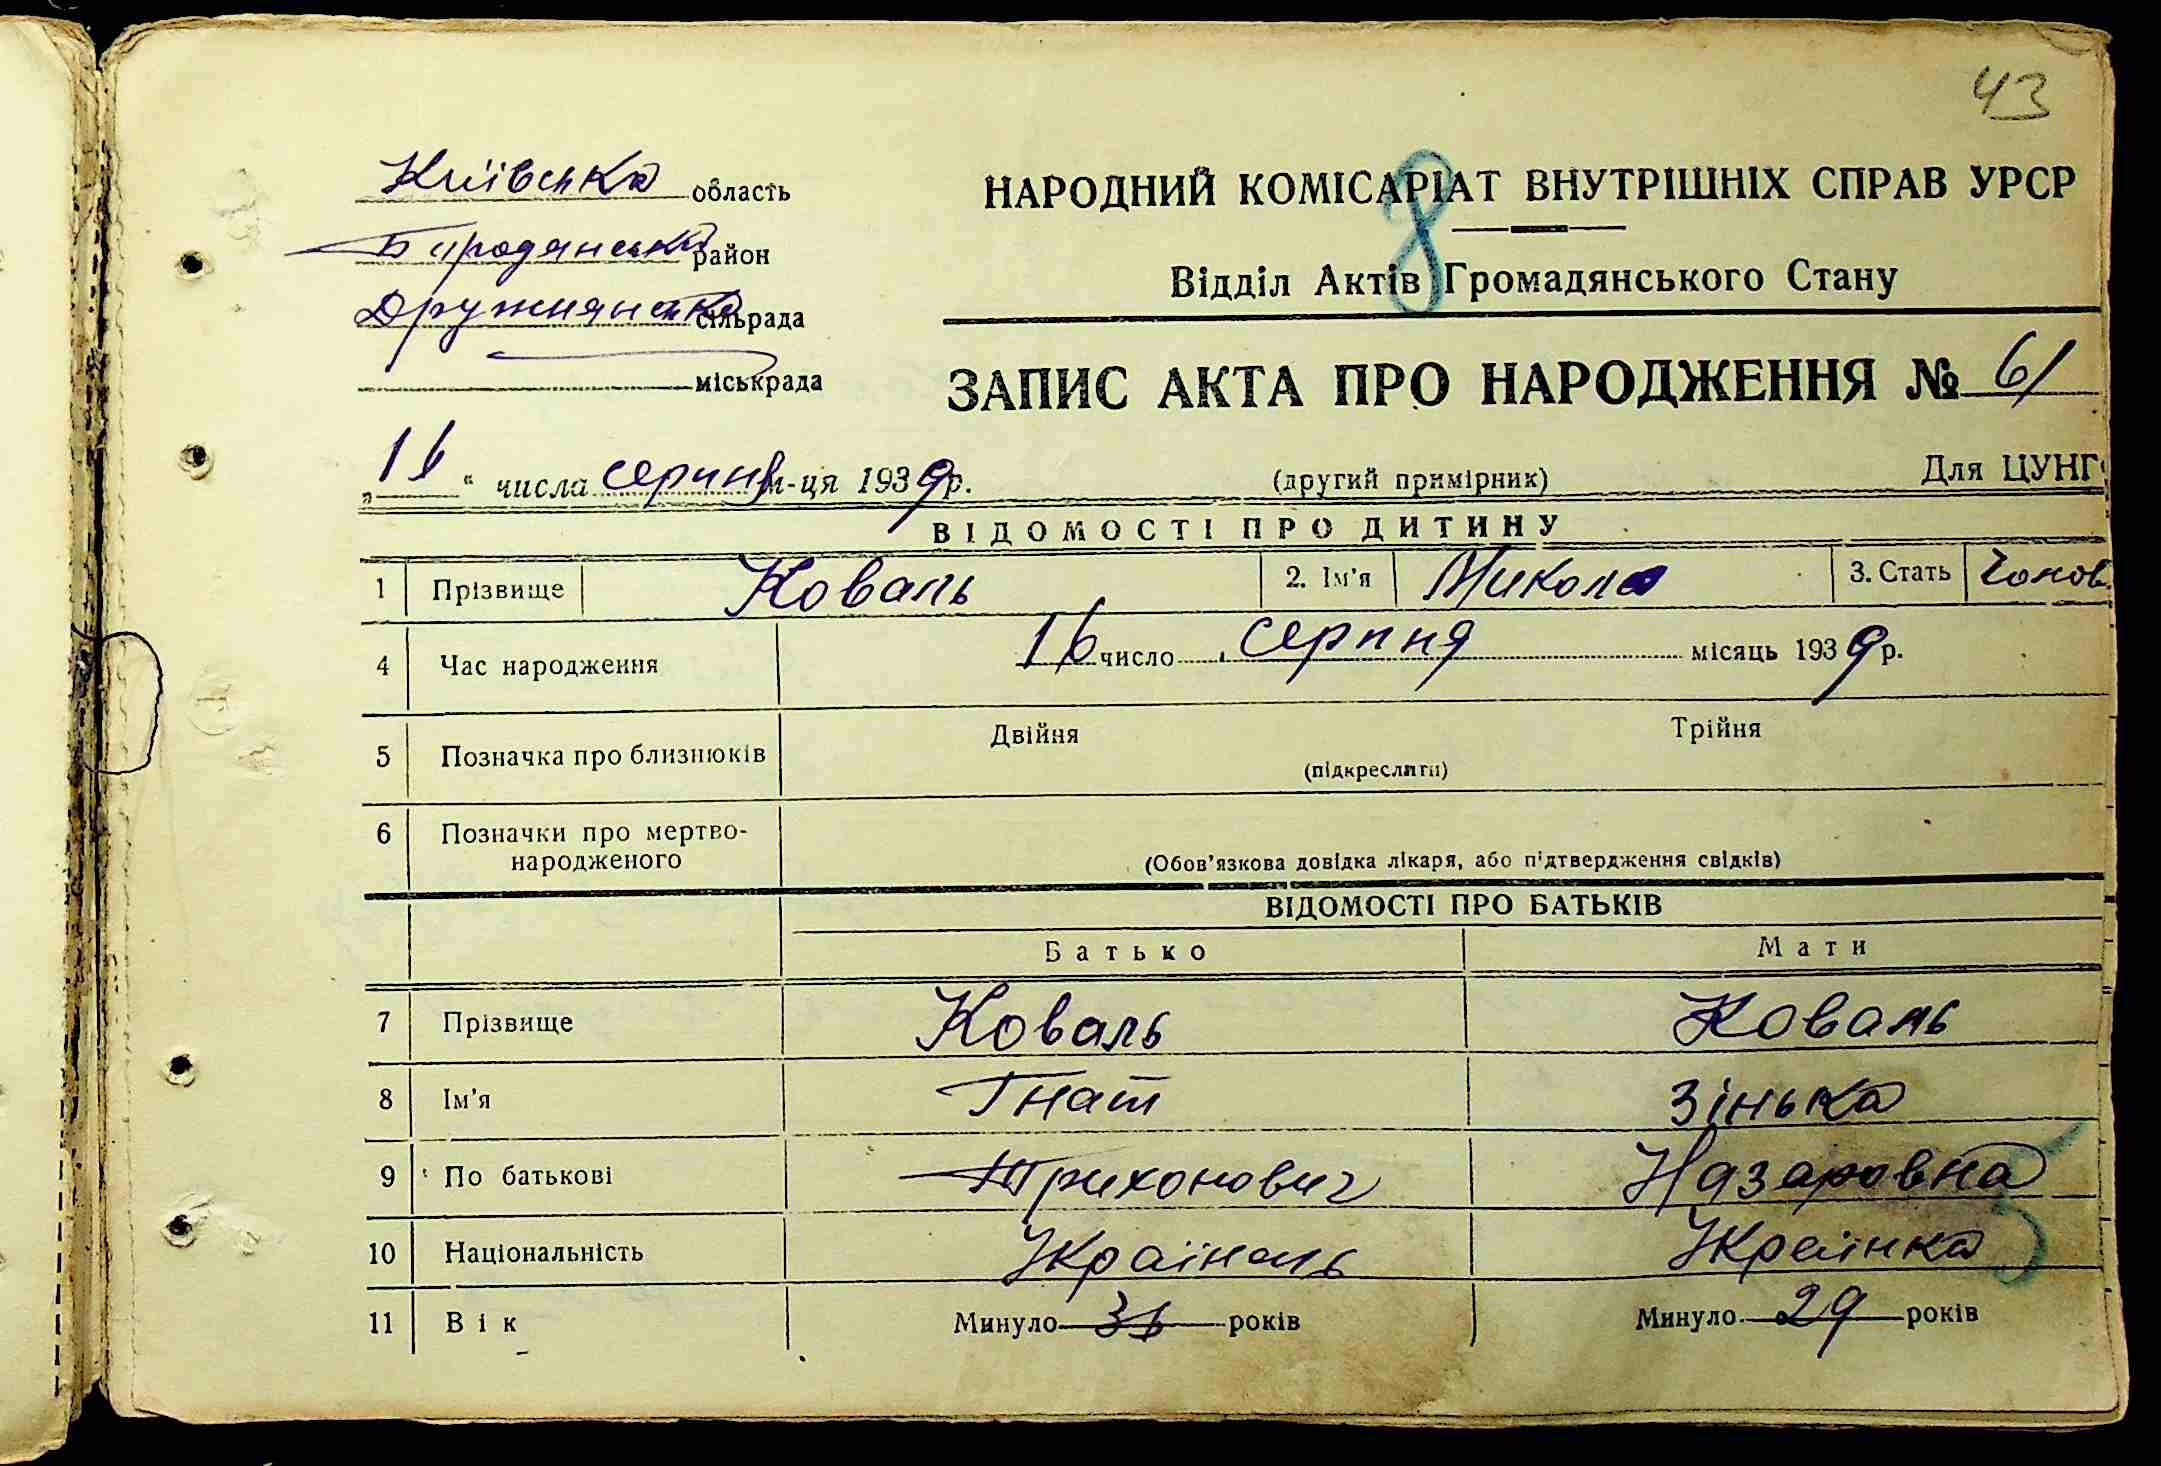 43
Київська область
НАРОДНИЙ КОМІСАРІАТ ВНУТРІШНІХ СПРАВ УРСР
8
Бородянська район
Відділ Актів Громадянського Стану
Дружнянська сільрада
міськрада
ЗАПИС АКТА ПРО НАРОДЖЕННЯ № 61
„16“ числа серпня м-ця 1939р.
(другий примірник)
Для ЦУНГО
ВІДОМОСТІ ПРО ДИТИНУ
1 Прізвище Коваль 2. Ім'я Микола 3. Стать Чолов
4 Час народження 16 число серпня місяць 1939р.
5 Позначка про близнюків Двійня Трійня
(підкреслити)
6 Позначки про мертво-
народженого (Обов'язкова довідка лікаря, або підтвердження свідків)
ВІДОМОСТІ ПРО БАТЬКІВ
Батько Мати
7 Прізвище Коваль Коваль
8 Ім'я Гнат Зінька
9 По батькові Трихонович Назаровна
10 Національність Українець Українка
11 Вік Минуло років Минуло 29 років